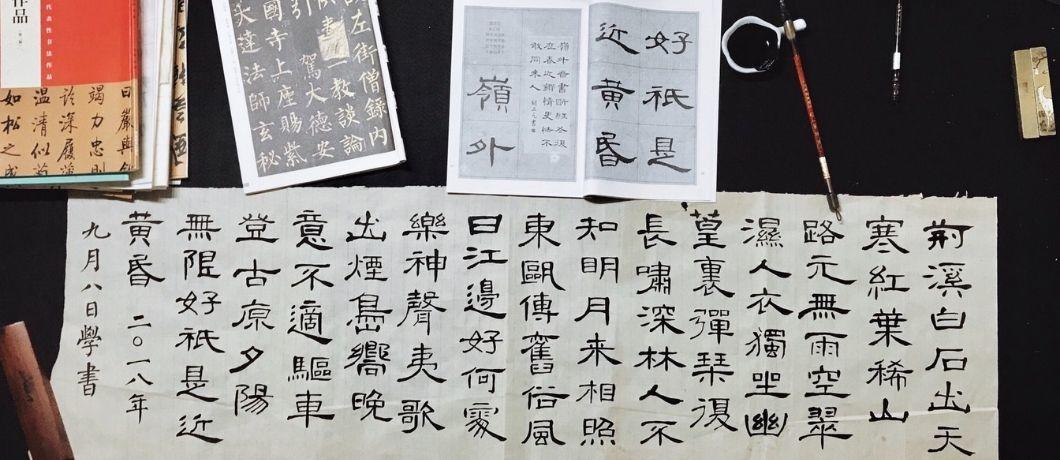 好祇是
近黄昏
嶺外音書断經冬復
敢問来人
嶺外
左街僧録内
教談論
引駕大德安
國寺上座賜紫
大達法師玄秘
作品
代表性书法作品
曰嚴與
竭力忠則
深履薄
温清似
如松之
荆溪白石出天
寒紅葉稀山
路元無雨空翠
濕人衣獨坐幽
篁裏彈琹復
長嘯深林人不
知明月来相照
東甌傳舊俗風
日江邊好何處
樂神聲夷歌
出煙島嚮晚
意不適驅車
登古原夕陽
無限好祇是近
黄昏 二〇一八年
九月八日學書